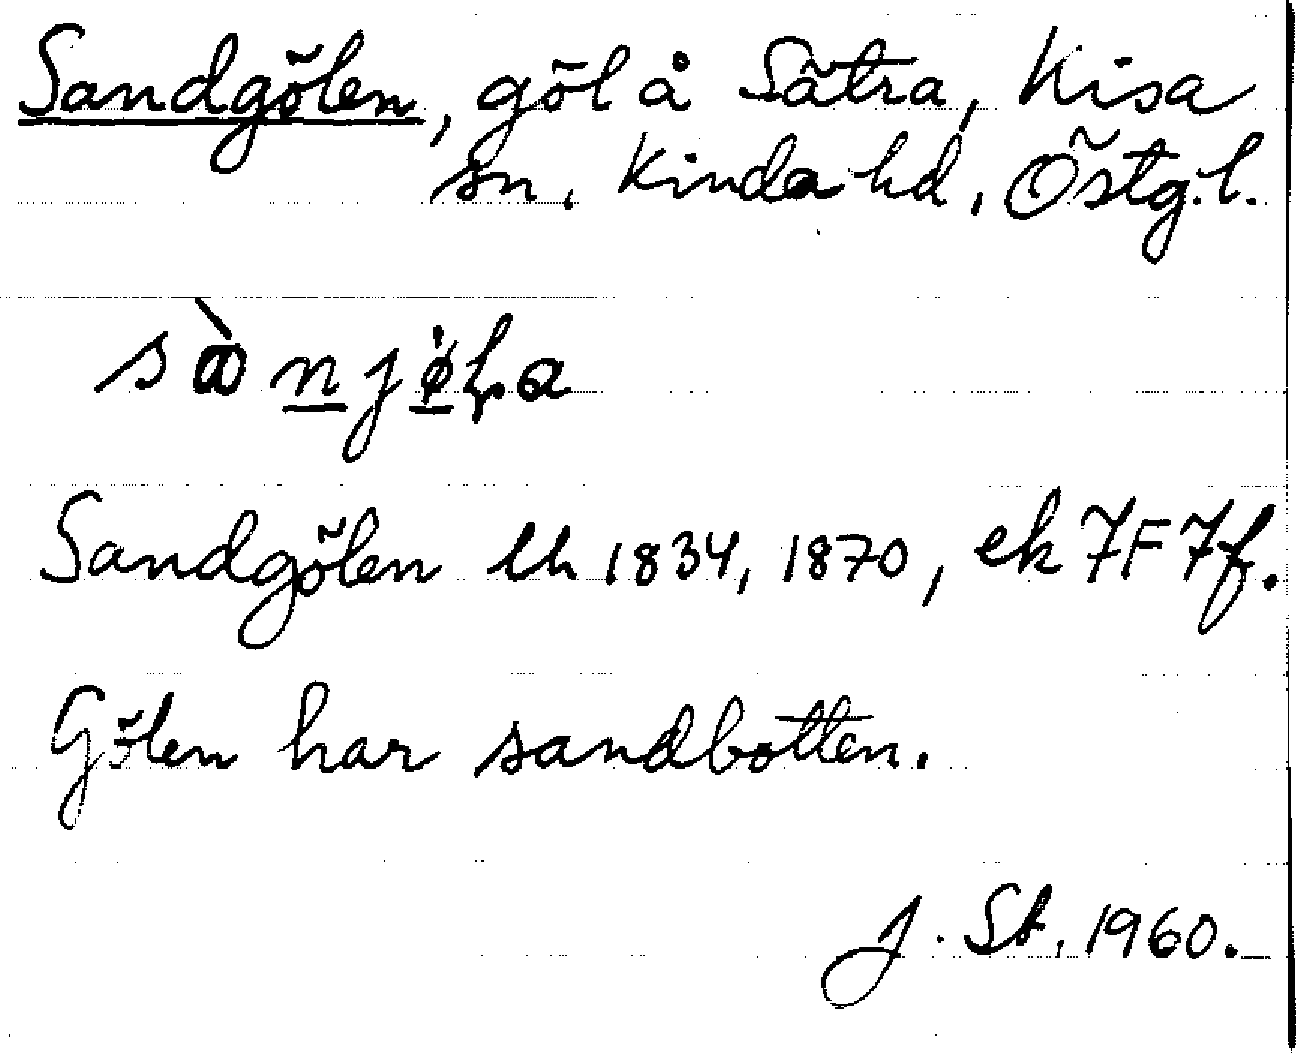 Sandgölen, göl å Sätra, Kisa
sn, Kinda hd, Östg.l.
Sandgölen lh 1834, 1870, ek 7F 7f.
Gölen har sandbotten.
J. St. 1960.